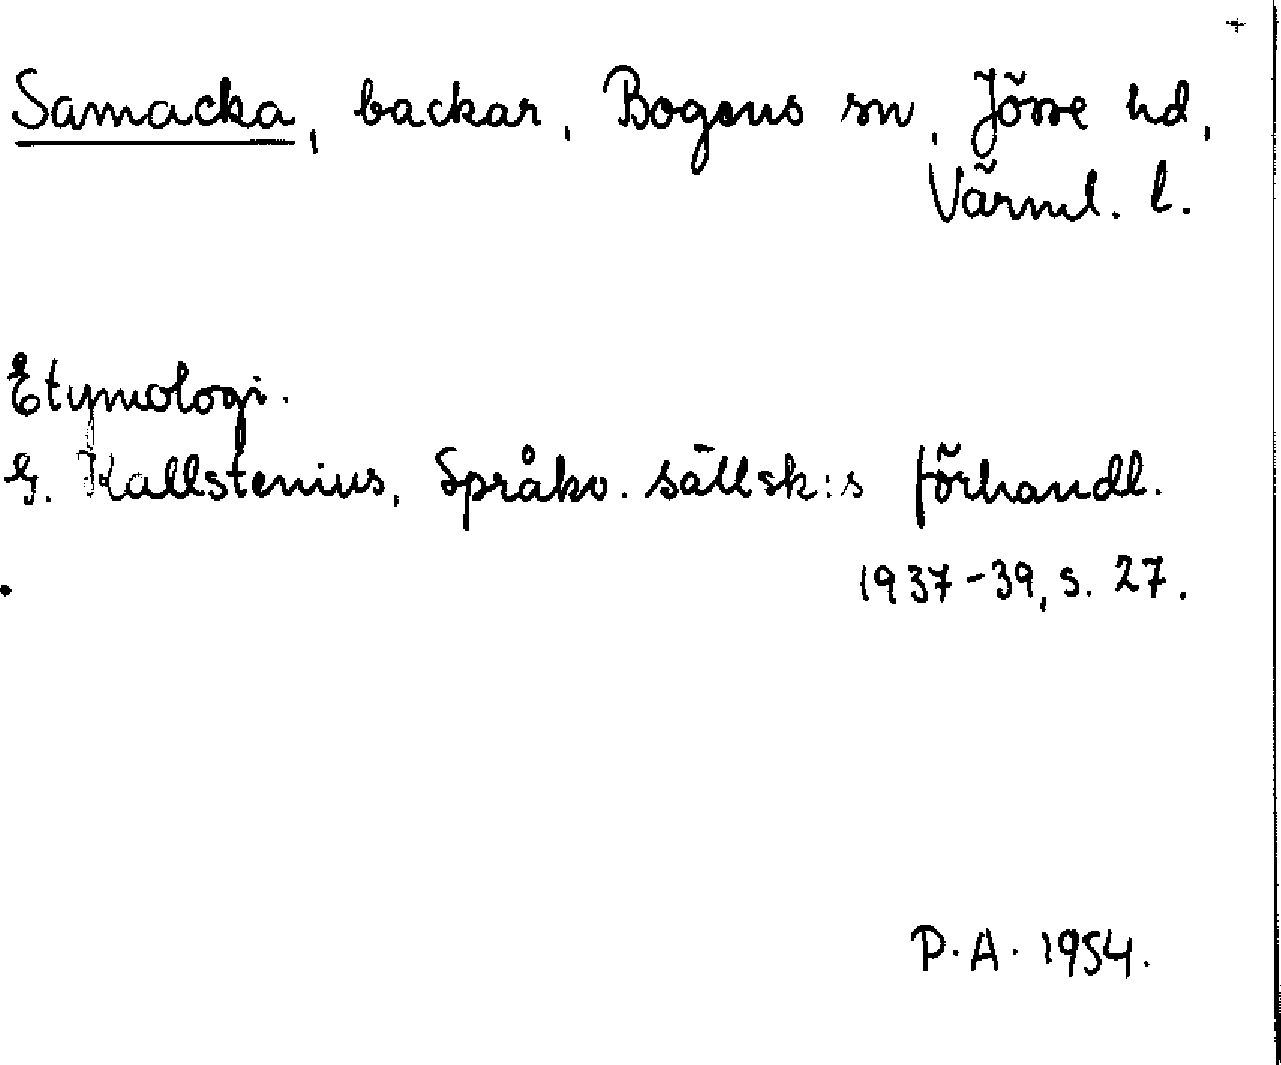 +
Samacka, backar, Bogens sn, Jösse hd,
Värml. l.
Etymologi.
G. Kallstenius, Språkv. sällsk:s förhandl.
1937-39, s. 27.
P. A. 1954.